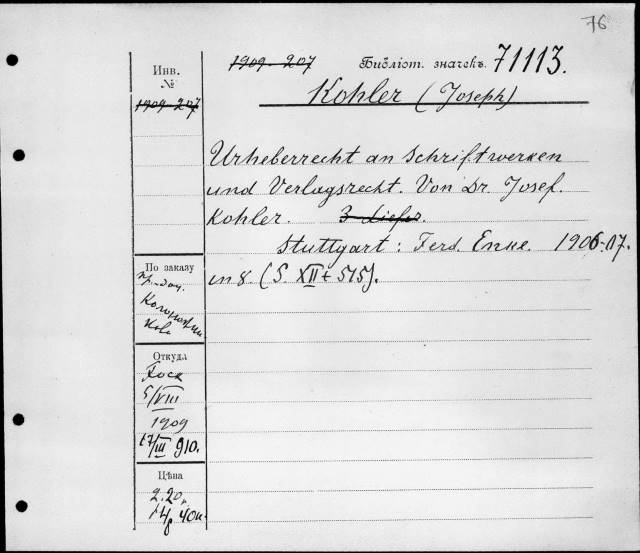 76
Инв.
№
1909-207
1909-207 Библіот. значекъ. 71113.
Kohler (Joseph)
Urheberrecht an Schriftwerken
und Verlagsrecht. Von Dr. Josef.
Kohler. 3 Liefer.
Stuttgart: Ferd. Enke. 1906-07.
in 8. (S. XII + 515).
По заказу
Откуда
5/VIII
1909
17/III 910.
Цѣна
2.20